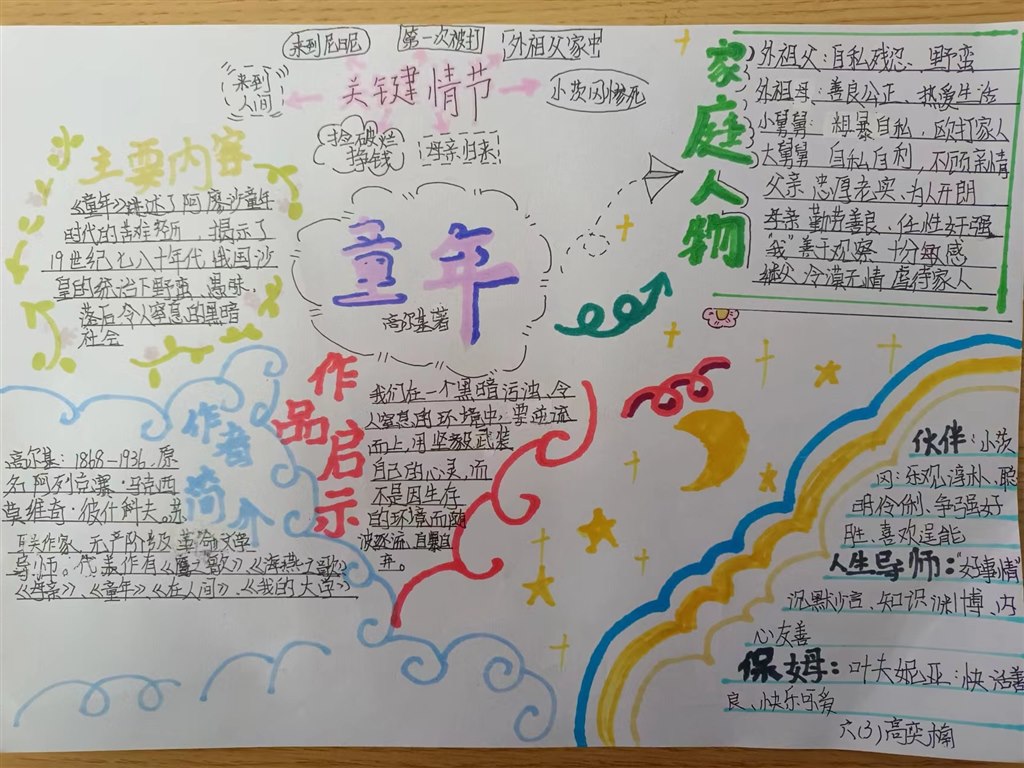 来到尼日尼
第一次被打
外祖父家中
来到
人间
关键情节
小茨冈惨死
捡破烂
挣钱
母亲归来
主要内容
《童年》讲述了阿廖沙童年
时代的苦难经历,揭示了
19世纪七八十年代俄国沙
皇的统治下野蛮、愚昧,
落后令人窒息的黑暗
社会
童年
高尔基著
家庭人物
外祖父:自私残忍、野蛮
外祖母:善良公正、热爱生活
小舅舅:粗暴自私,殴打家人
大舅舅 自私自利,不顾亲情
父亲 忠厚老实、为人开朗
母亲 勤劳善良、任性好强
“我”善于观察 十分敏感
继父 冷漠无情 虐待家人
作者简介
高尔基:1868-1936.原
名阿列克塞·马克西
莫维奇·彼什科夫。苏
联作家、无产阶级革命文学
导师。代表作有《鹰之歌》《海燕之歌》
《母亲》、《童年》《在人间》、《我的大学》
作品启示
我们在一个黑暗污浊、令
人窒息的环境中,要逆流
而上,用坚毅武装
自己的心灵,而
不是因生存
的环境而随
波逐流、自暴自
弃。
伙伴:小茨
冈:乐观淳朴、聪
明伶俐、争强好
胜、喜欢逞能
人生导师:“好事情”
沉默少言、知识渊博、内
心友善
保姆:叶夫妮亚:快活善
良、快乐可爱
六(3)高奕楠